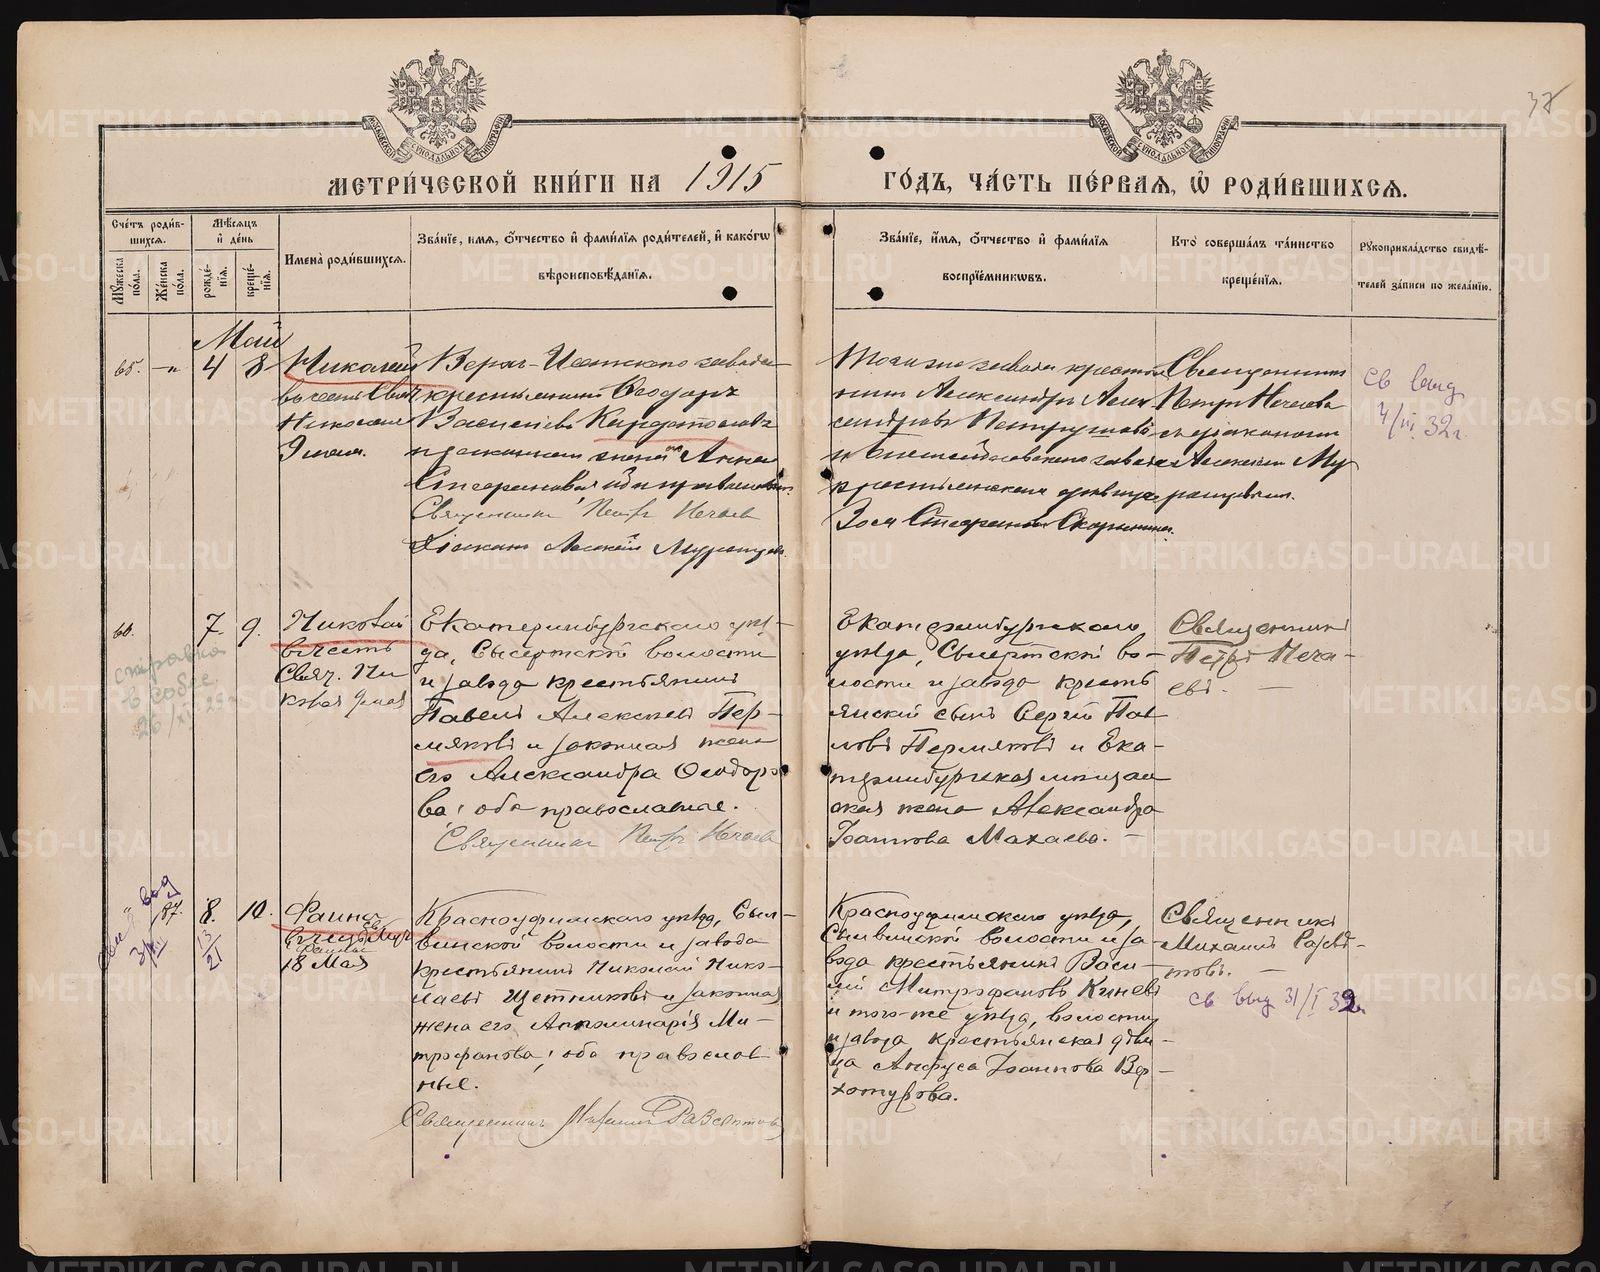 37
МЕТРИ́ЧЕСКОЙ КНИ́ГИ НА 1915
ГО́ДЪ, ЧА́СТЬ ПЕ́РВАЯ, Ѡ РОДИ́ВШИХСЯ.
Счетъ роди́в-
шихся.
Му́жеска по́ла.
Же́нска по́ла.
Мѣ́сяцъ
и де́нь
рожде́нїя.
креще́нїя.
Имена̀ роди́вшихся.
Зва́нїе, и́мя, ѻ́тчество и҆ фами́лїя роди́телей, и҆ како́гѡ
вѣроисповѣ́данїя.
Зва́нїе, и҆́мя, ѻ҆́тчество и҆ фами́лїя
воспрїе́мниковъ.
Кто̀ соверша́лъ та́инство
креще́нїя.
Рукоприкла́дство свидѣ́-
телей за́писи по жела́нїю.
Май
65. — " 4 8
Николай
въ честь Свят
Николая
9 мая.
Верхъ-Исетского завода
крестьянинъ Ѳеодоръ
Василіевъ
законная жена Анна
оба православны.
Священникъ Петръ Нечаевъ
Діаконъ Алексій
Того же завода крестья
нинъ Александръ Алек
сандровъ
завода
крестьянская дѣвица
Зоя
Священникъ
Петръ Нечаевъ
съ діакономъ
Алексіемъ Му
св выд
4/III 32 г.
66. 7. 9.
справка
26/XI 25 г
Николай
въ честь
Свят. Ни
колая 9 мая
Екатеринбургскаго уѣз-
да, Сысертской волости
и завода крестьянинъ
Павелъ Алексѣевъ Пер-
мяковъ и законная жена
его Александра Ѳеодоро
ва; оба православные.
Священникъ Петръ Нечаевъ
Екатеринбургскаго
уѣзда, Сысертской во-
лости и завода кресть
янскій сынъ Сергій Пав
ловъ Пермяковъ и Ека-
теринбургская мѣщан
ская жена Александра
Іоаннова Махаева. —
Священникъ
Петръ Неча-
евъ. —
87. 8. 10.
13/21
Фаина
въ честь
18 Мая
Красноуфимскаго уѣзда, Сыл-
винской волости и завода
крестьянинъ Николай Нико-
лаевъ Щетниковъ и законная
жена его Апполинарія Ми-
трофанова; оба православ
ные.
Священникъ Михаилъ
Красноуфимскаго уѣзда,
Сылвинской волости и за-
вода крестьянинъ Васи-
лій Митрофановъ Киневъ
и того-же уѣзда, волости
и завода крестьянская дѣви-
ца Анфуса Іоаннова Вер-
хотурова.
Священникъ
Михаилъ
св выд 31/I 32 г.
METRIKI.GASO-URAL.RU